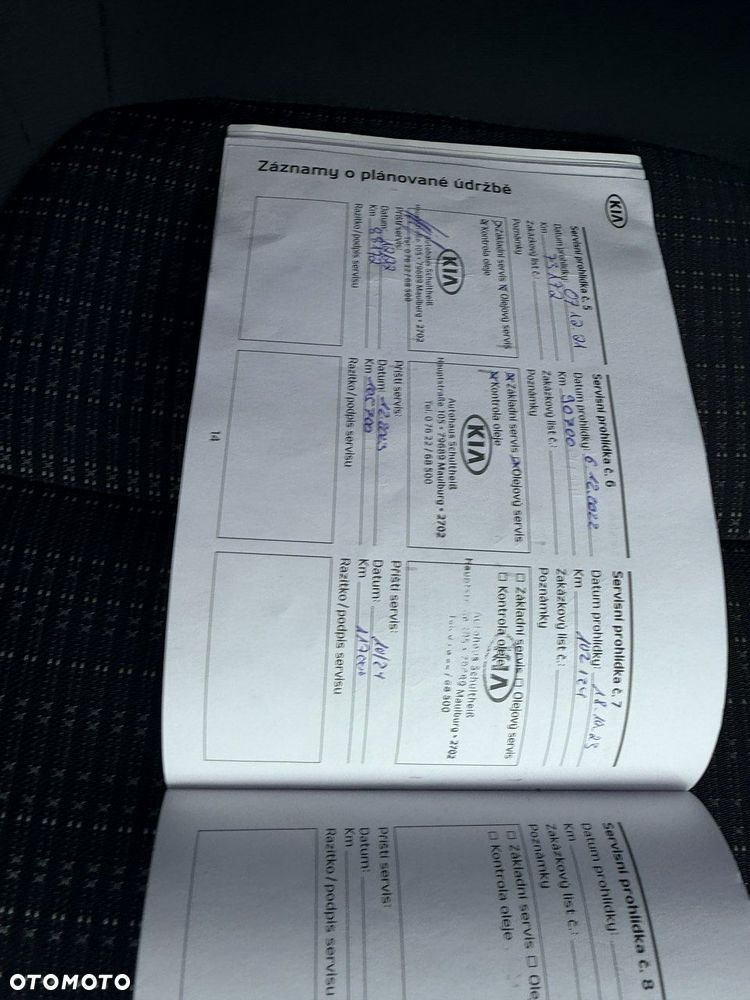 Záznamy o plánované údržbě
KIA
Servisní prohlídka č. 5
Datum prohlídky: 07.12.21
Km 75172
Zakázkový list č.:
Poznámky
Základní servis Olejový servis
Kontrola oleje
KIA
Autohaus Schultheiß
Hauptstraße 105 • 79689 Maulburg • 2702
Tel. 0 76 22 / 68 500
Příští servis:
Datum:
Km
Razítko/podpis servisu
Servisní prohlídka č. 6
Datum prohlídky: 6.12.2022
Km 90700
Zakázkový list č.:
Poznámky
Základní servis Olejový servis
Kontrola oleje
KIA
Autohaus Schultheiß
Hauptstraße 105 • 79689 Maulburg • 2702
Tel. 0 76 22 / 68 500
Příští servis:
Datum: 12.2023
Km 105700
Razítko/podpis servisu
Servisní prohlídka č. 7
Datum prohlídky: 18.10.23
Km 102124
Zakázkový list č.:
Poznámky
□ Základní servis □ Olejový servis
□ Kontrola oleje
KIA
Autohaus Schultheiß
Hauptstraße 105 • 79689 Maulburg • 2702
/ 68 500
Příští servis:
Datum: 10/24
Km 117000
Razítko/podpis servisu
14
Servisní prohlídka č. 8
Datum prohlídky:
Km
Zakázkový list č.:
Poznámky
□ Základní servis □ Ole
□ Kontrola oleje
Příští servis:
Datum:
Km
Razítko/podpis servisu
OTOMOTO